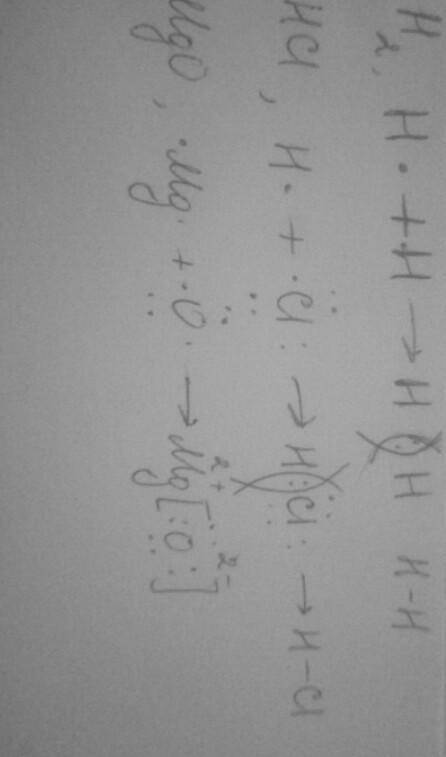 H₂, H· + H → H:H H-H
HCl, H· + ·C̤̈l: → H:C̤̈l: → H-Cl
MgO, ·Mg· + ·Ö̤· → Mg²⁺[:Ö̤:]²⁻